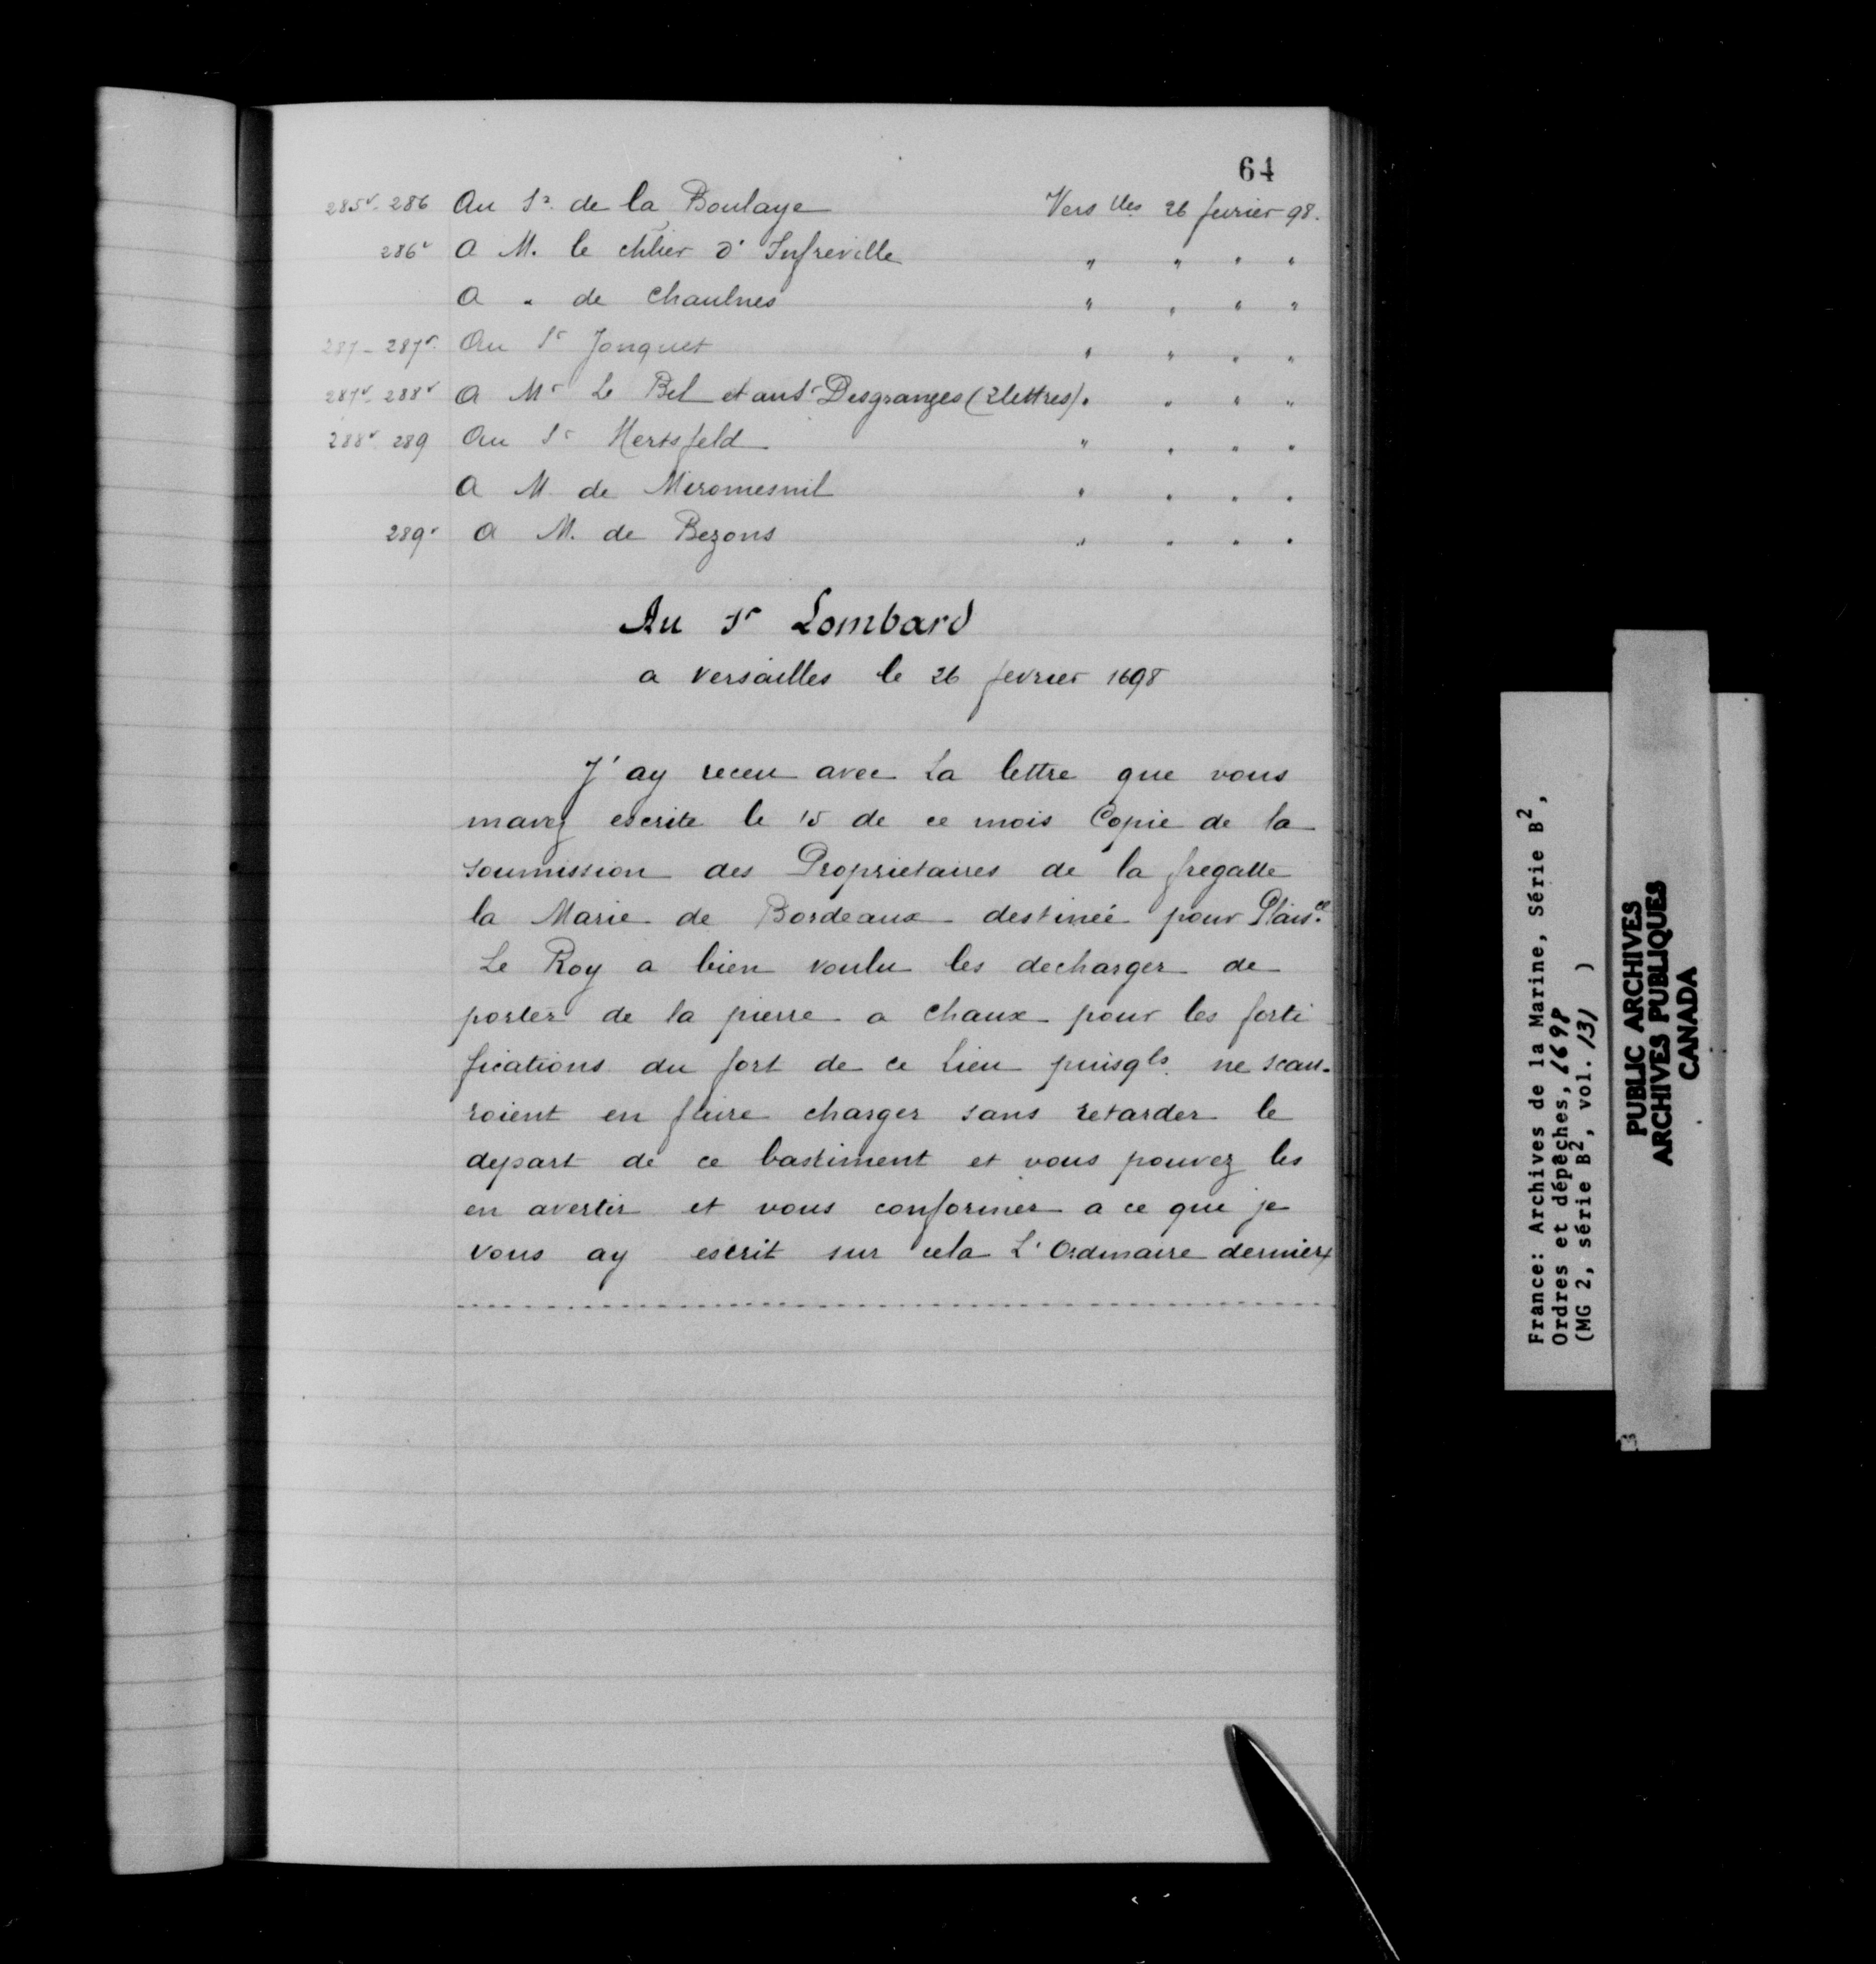 64
285v. 286 Au Sr. de la Boulaye Vers lles 26 fevrier 98.
286v A M. le chlier d'Infreville " " " "
A " de Chaulnes " " " "
287 - 287v. Au Sr Jonquet " " " "
287v. 288v A Mr Le Bel et au Sr Desgranges (2 lettres) " " " "
288v 289 Au Sr Hertsfeld " " " "
A M. de Miromesnil " " " "
289v A M. de Bezons " " " "
Au Sr Lombard
a versailles le 26 fevrier 1698
J'ay receu avec La lettre que vous
mavez escrite le 15 de ce mois Copie de la
soumission des Proprietaires de la fregatte
la Marie de Bordeaux destinée pour Plaisce.
Le Roy a bien voulu les decharger de
porter de la pierre a chaux pour les forti
fications du fort de ce Lieu puisqls. ne scau-
roient en faire charger sans retarder le
depart de ce bastiment et vous pouvez les
en avertir et vous conformer a ce que je
vous ay escrit sur cela L'Ordinaire dernier
France: Archives de la Marine, Série B2,
Ordres et dépêches, 1698
(MG 2, série B2, vol. 131 )
PUBLIC ARCHIVES
ARCHIVES PUBLIQUES
CANADA